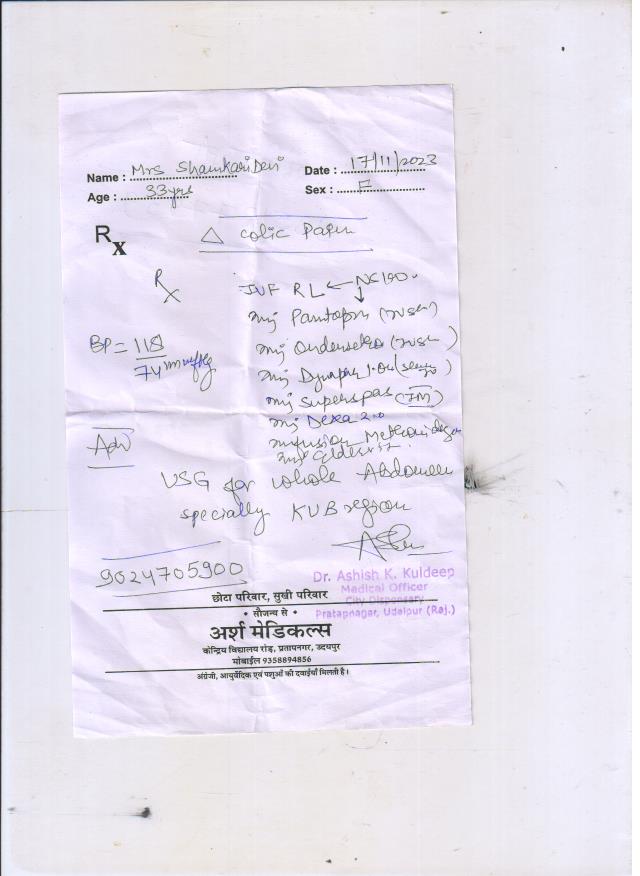 Name : Mrs Shankari Devi Date : 17/11/2023
Age : 33yrs Sex : F
Rx △ colic Pain
Rx IVF RL ← NS
inj Pantop
BP = 118/74 mmHg
inj
inj Dynapar
inj Superspas (IM)
inj Dexa 2.0
Adv infusion
inj
USG for whole Abdomen
specially KUB region
9024705900
Dr. Ashish K. Kuldeep
Medical Officer
छोटा परिवार, सुखी परिवार
City Dispensary
• सौजन्य से •
Pratapnagar, Udaipur (Raj.)
अर्श मेडिकल्स
केन्द्रिय विद्यालय रोड़, प्रतापनगर, उदयपुर
मोबाईल 9358894856
अंग्रेजी, आयुर्वेदिक एवं पशुओं की दवाईयाँ मिलती है।